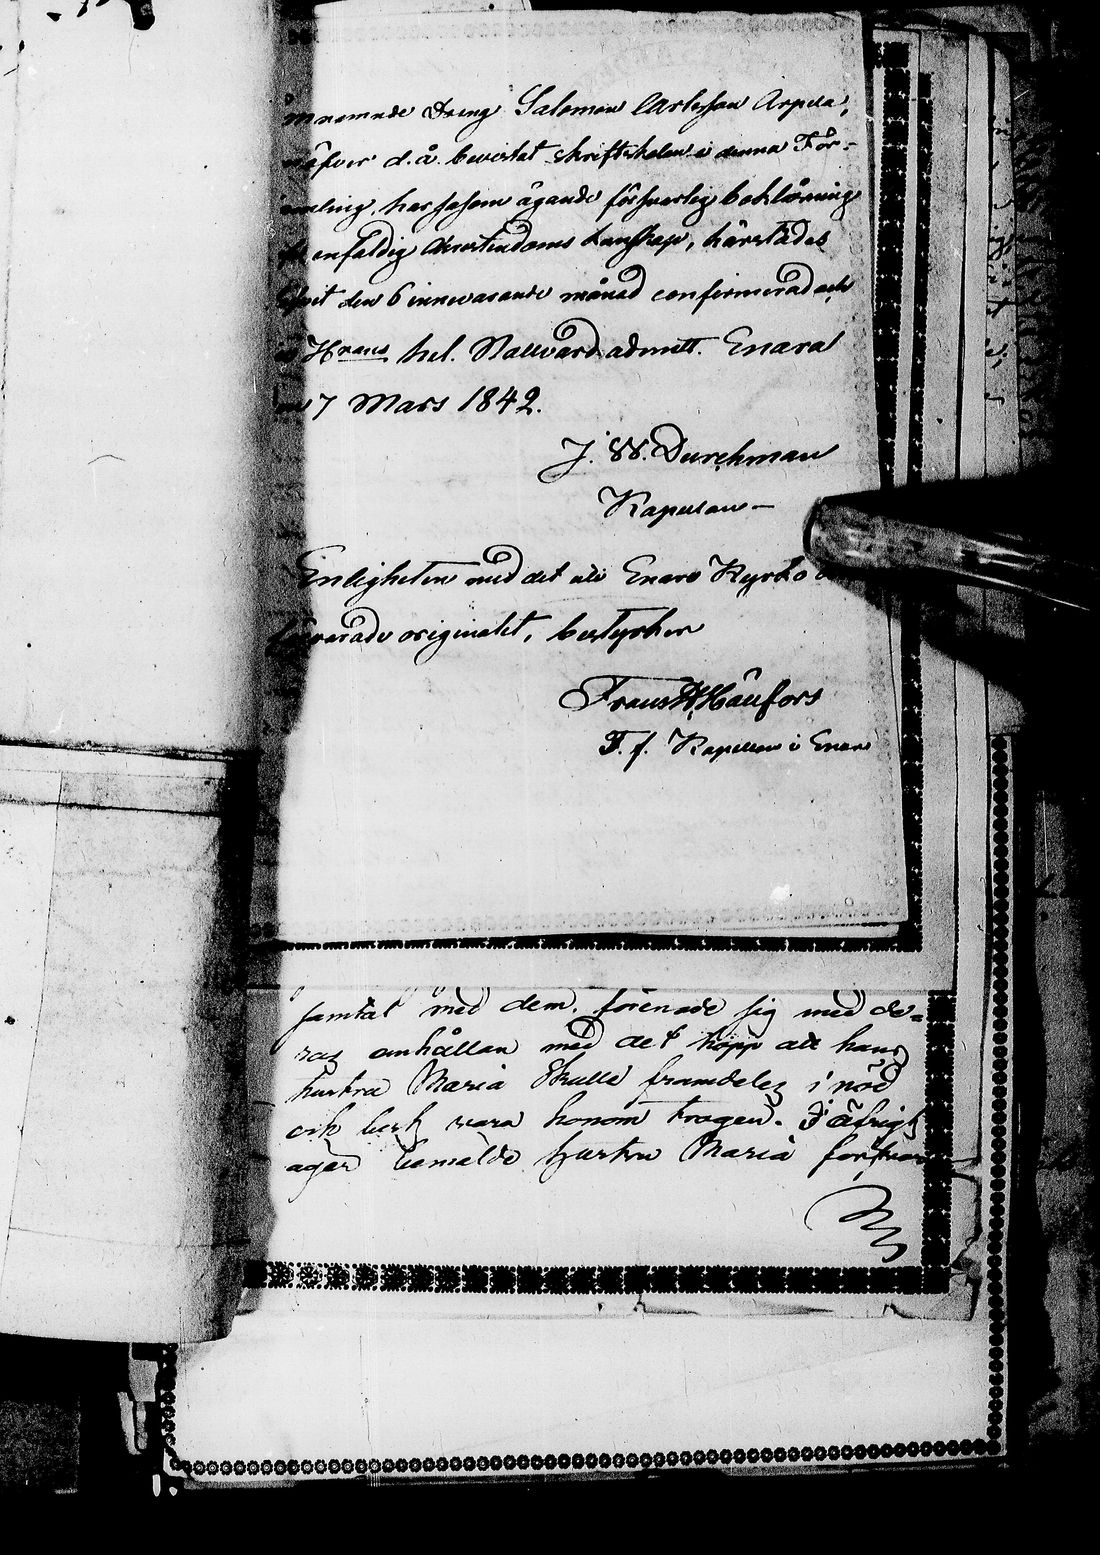 Dreng Salomon Carlsson Arpela,
d. å. bevistat skriftskolan i denna För-
samling, har såsom ägande försvarlig boklärning
enfaldig Christendoms kunskap, härstädes
blivit den 6 innevarande månad confirmerad och
hel. Nattvard admitt. Enara
7 Mars 1842.
J. W. Durchman
Kapellan
Enligheten med det uti Enare Kyrko
förvarade originalet, bestyrker
Frans W. Hänfors
T. f. Kapellan i Enare
samtal med dem, förenade sig med de-
ras anhållan med det hopp att hans
hustru Maria skulle framdeles i nöd
och lust vara honom trogen. I öfrigt
äger bemälde hustru Maria försvar